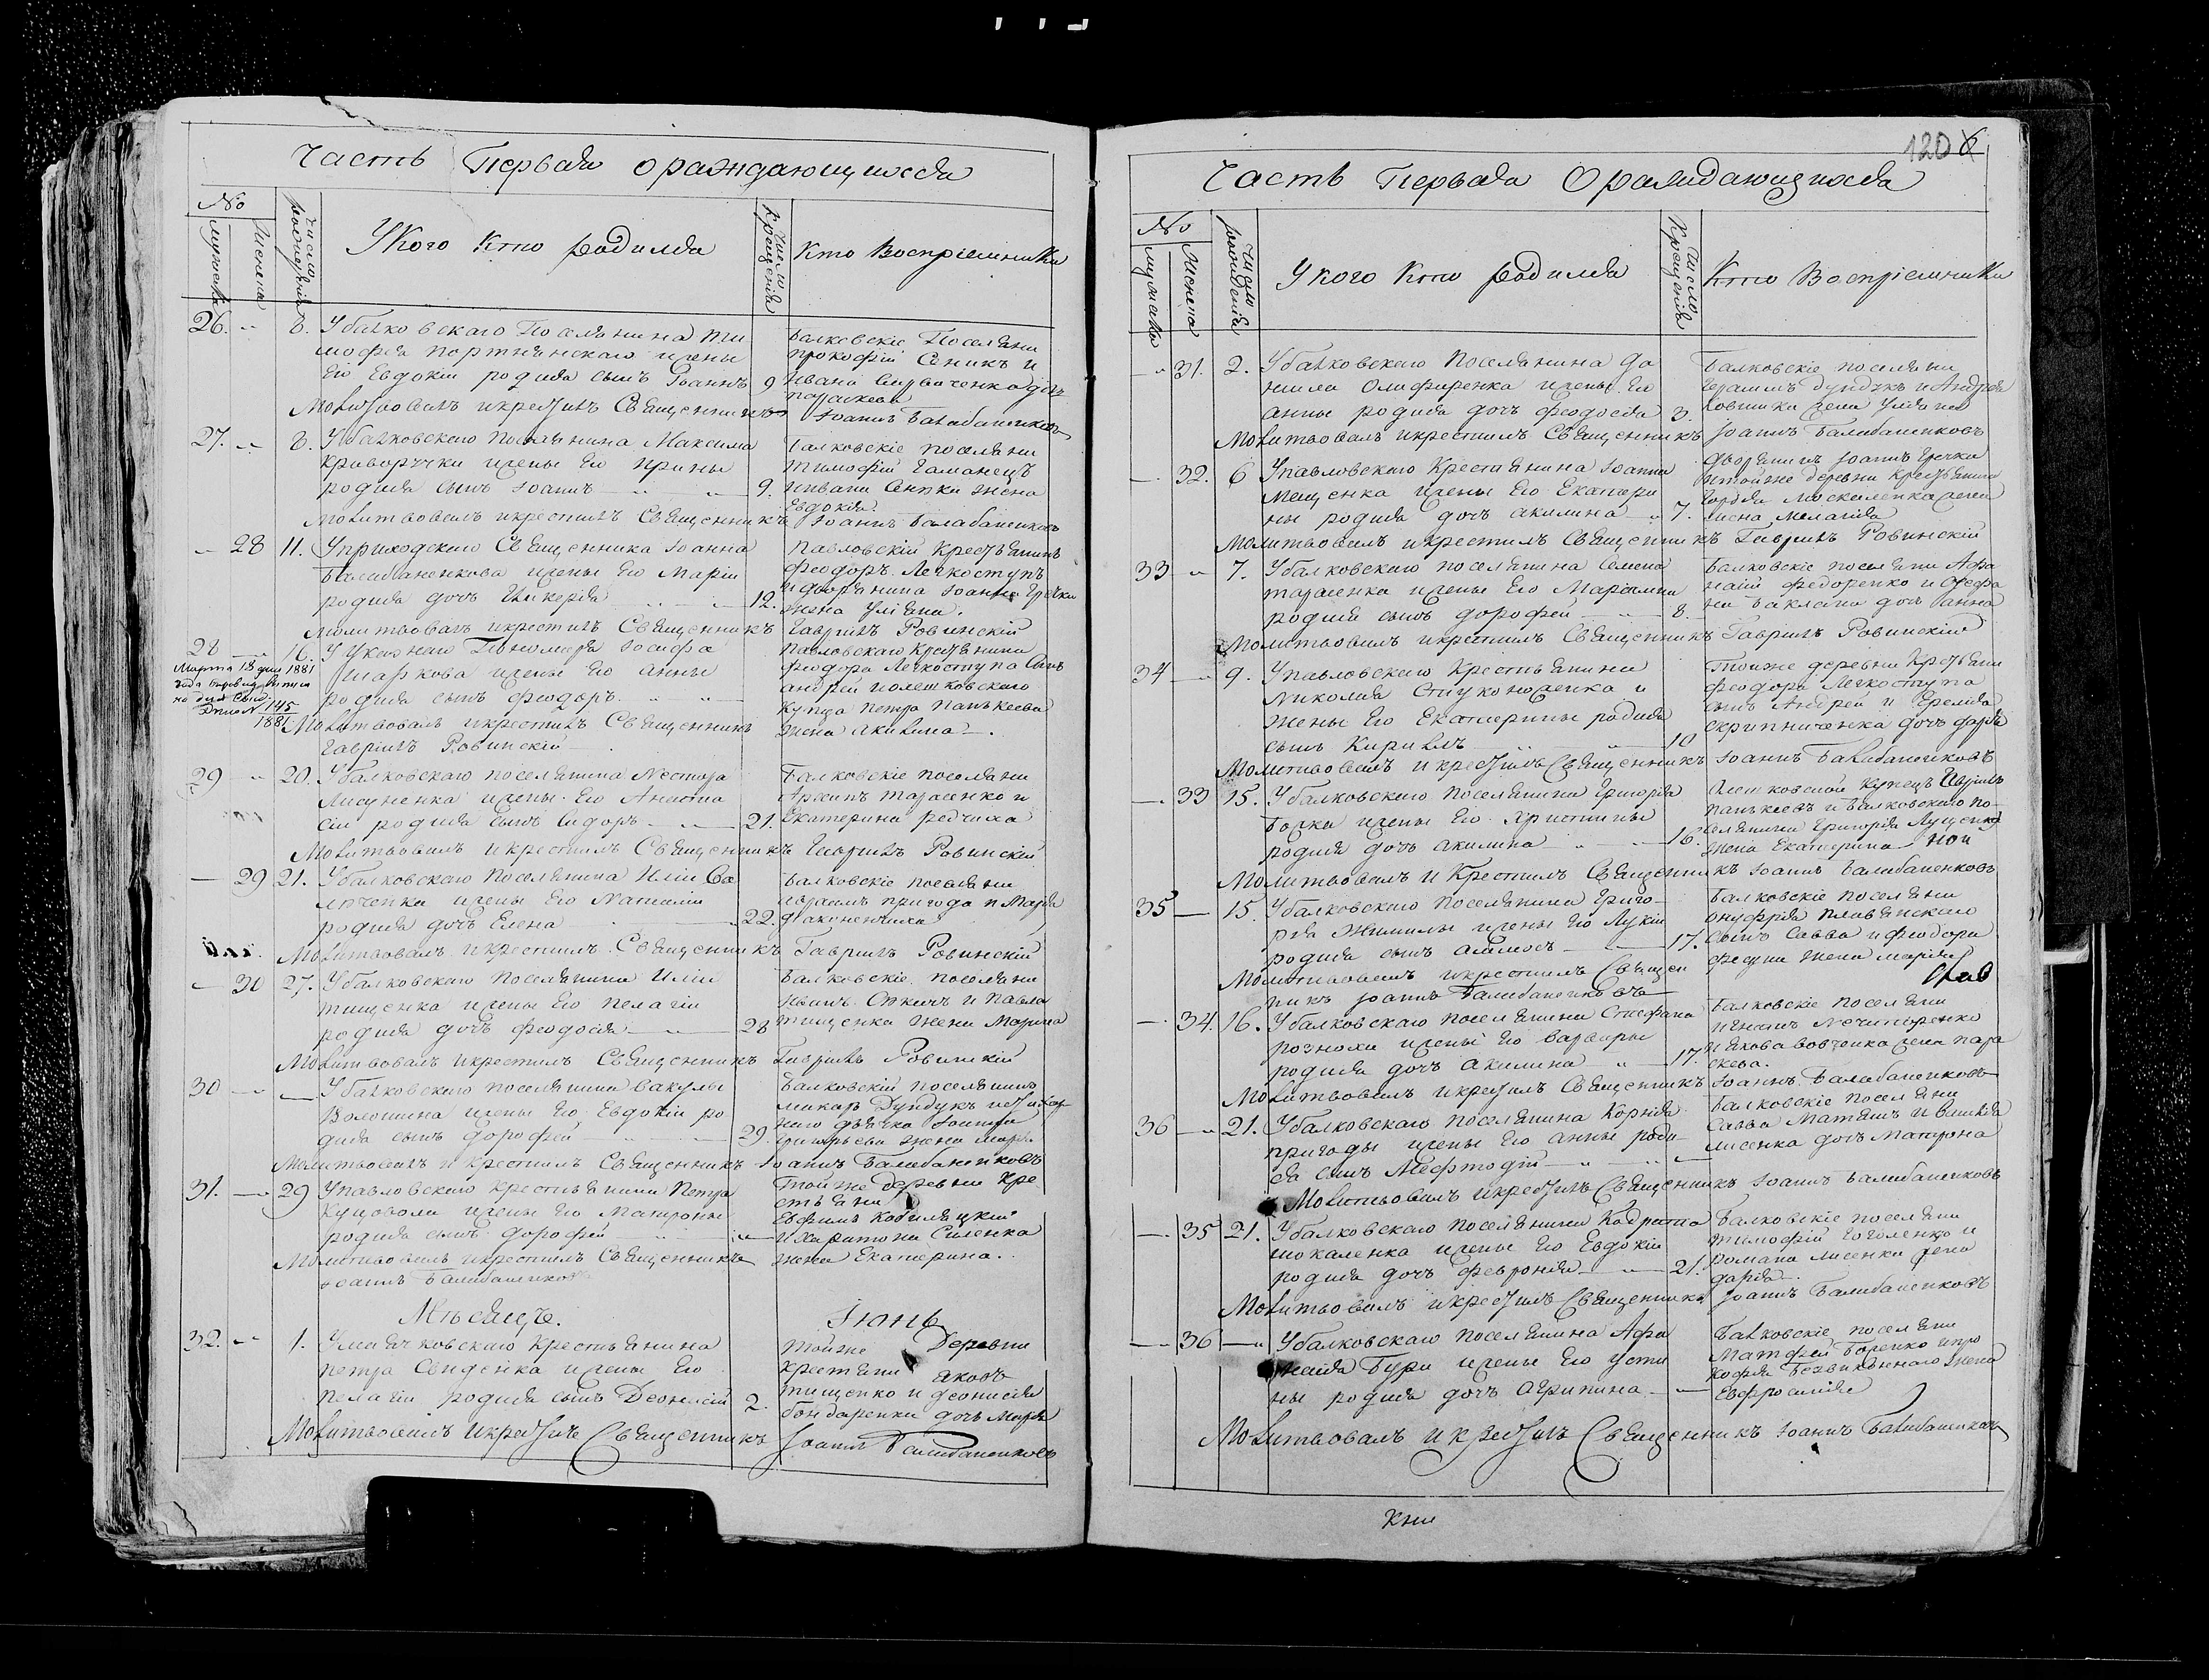 Часть Первая о раждающихся
№
мужеска
женска
Число рождения
У кого кто родился
Число крещения
Кто Воспрiемники
26. 8. У балковскаго Поселянина Ти
мофея Портнянскаго и жены
Его Евдокiи родился сынъ Iоаннъ 9
Балковскiе Поселяни
прокофiй Сеникъ и
Ивана дочь
параскева
Молитвовалъ и крестилъ Священникъ Iоаннъ Балабаненковъ
27. 8. У балковскаго Поселянина Максима
Криворучки и жены Его Ирины
родился сынъ Iоаннъ 9.
Балковскiе поселяни
Тимофiй Гаманецъ
и Ивана Сенжи жена
Евдокiя.
Молитвовалъ и крестилъ Священникъ Iоаннъ Балабаненковъ
28 11. У приходскаго Священника Iоанна
Балабаненкова и жены Его Марiи
родися дочь Гликерiя 12.
Павловскiй Крестьянинъ
феодоръ Легкоступъ
и дворянина Iоанна Гречки
жена Улiяна.
Молитвовалъ и крестилъ Священникъ Гаврiилъ Ровинскiй
28 16. У Указнаго Пономаря Iосифа
Шафкова и жены Его анны
родися сынъ феодоръ.
Павловскаго Крестьянина
феодора Легкоступа Сынъ
андрей и олешковскаго
Купца Петра Панькеева
жена Акилина.
Марта 18 дня 1881
года
№ 145
1881
Молитвовалъ и крестилъ Священникъ
Гаврiилъ Ровинскiй
29 20. У балковскаго поселянина Нестора
Лисуненка и жены Его Анаста
сiи родися сынъ Сидоръ 21.
Балковскiе поселяни
Архипъ Тарасенко и
Екатерина редчиха
Молитвовалъ и крестилъ Священникъ Гаврiилъ Ровинскiй
29 21. У балковскаго Поселянина Илiи Са
и жены Его Наталiи
родися дочь Елена 22.
Балковскiе поселяни
Авраамъ пригода и Марiя
Дяконенчиха
Молитвовалъ и крестилъ Священникъ Гаврiилъ Ровинскiй
30 27. У балковскаго поселянина Илiи
тищенка и жены Его пелагiи
родися дочь феодосiя 28
Балковскiе поселяни
Иванъ и Павла
тищенка жена Марина
Молитвовалъ и крестилъ Священникъ Гаврiилъ Ровинскiй
30 У балковскаго поселянина вакулы
Волошина и жены Его Евдокiи ро
дися сынъ дорофей 29.
Балковскiй поселянинъ
макаръ Дундукъ
дьячка
Григорьева жена
Молитвовалъ и крестилъ Священникъ Iоаннъ Балабаненковъ
31. 29 У павловскаго крестьянина Петра
Куцовола и жены Его Матроны
родися сынъ дорофей
Тойже деревни Кре
стьяни
Евфимъ Кобиляцкiй
и Харитона Силенка
жена Екатерина.
Молитвовалъ и крестилъ Священникъ
Iоаннъ Балабаненковъ
Мѣсяцъ. Iюнь
32. 1. У маячковскаго крестьянина
петра и жены Его
пелагiи родися сынъ Деонисiй 2.
Тойже Деревни
крестьяни яковъ
тищенко и деонисiя
бондаренка дочь Марiя
Молитвовалъ и крестилъ Священникъ Iоаннъ Балабаненковъ
120
Часть Первая О раждающихся
№
мужеска
женска
Число рождения
У кого кто родился
Число крещения
Кто Воспрiемники
31. 2. У балковскаго поселянина да
нила Олифиренка и жены Его
анны родися дочь феодосiя 3.
Балковскiе поселяни
Герасимъ Дундукъ и Андрея
Ковшика жена Улiяна
Молитвовалъ и крестилъ Священникъ Iоаннъ Балабаненковъ
32. 6 У павловскаго Крестьянина Iоанна
Мещенка и жены Его Екатери
ны родися дочь акилина 7.
Дворянинъ Iоаннъ Гречка
и тойже деревни Крестьянина
Москаленка
жена Мелагiя
Молитвовалъ и крестилъ Священникъ Гаврiилъ Ровинскiй
33 7. У балковскаго поселянина Семена
тарасенка и жены Его Марiамны
родися сынъ дорофей 8.
Балковскiе поселяни Афа
насiй федоренко и Стефа
на Баклана дочь анна
Молитвовалъ и крестилъ Священникъ Гаврiилъ Ровинскiй
34 9. У павловскаго Крестьянина
Николая Стуконоженка и
жены Его Екатерины родися
сынъ Кирилъ 10
Тойже деревни Крестьяни
феодора Легкоступа
сынъ Андрей и Еремiя
Скрипниченка дочь дарiя
Молитвовалъ и крестилъ Священникъ Iоаннъ Балабаненковъ
33 15. У балковскаго поселянина Григорiя
Борка и жены Его Христины
родися дочь акилина 16.
Олешковской Купецъ Гаврiилъ
панькеевъ и балковскаго по
селянина Григорiя Луценка
жена Екатерина
Молитвовалъ и Крестилъ Священникъ Iоаннъ Балабаненковъ
35 15. У балковскаго Поселянина Григо
рiя Жишилы и жены Его Лукiи
родися сынъ 17.
Балковскiе поселяни
Онуфрiя плавянскаго
сынъ Савва и феодора
жена Марiя
Молитвовалъ и крестилъ Священ
никъ Iоаннъ Балабаненковъ
34. 16. У балковскаго поселянина Стефана
розноха и жены Его варвары
родися дочь акилина 17.
Балковскiе поселяни
Нечипоренко
и якова вовченка жена пара
скева.
Молитвовалъ и крестилъ Священникъ Iоаннъ Балабаненковъ
36 21. У балковскаго поселянина Корнiя
пригоды и жены Его анны роди
ся сынъ Мефтодiй
Балковскiе поселяни
Савва Маташъ и
лисенка дочь Матрона
Молитвовалъ и крестилъ Священникъ Iоаннъ Балабаненковъ
35 21. У балковскаго поселянина Кодрата
шокаленка и жены Его Евдокiи
родися дочь февронiя 21.
Балковскiе поселяни
тимофiй Гоголенко и
Романа лисенка жена
дарiя.
Молитвовалъ и крестилъ Священникъ Iоаннъ Балабаненковъ
36 У балковскаго поселянина Афа
насiя Бури и жены Его усти
ны родися дочь агрипина
Балковскiе поселяни
Матфей Боренко и про
кофiя Безвиконнаго жена
Евфросинiя
Молитвовалъ и крестилъ Священникъ Iоаннъ Балабаненковъ